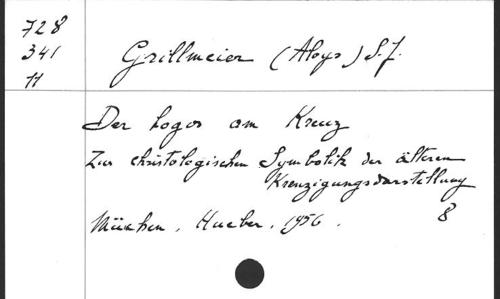 728
341
11
Grillmeier (Aloys) S.J.
Der Logos am Kreuz
Zur christologischen Symbolik der älteren
Kreuzigungsdarstellung
München, Hueber, 1956.
8